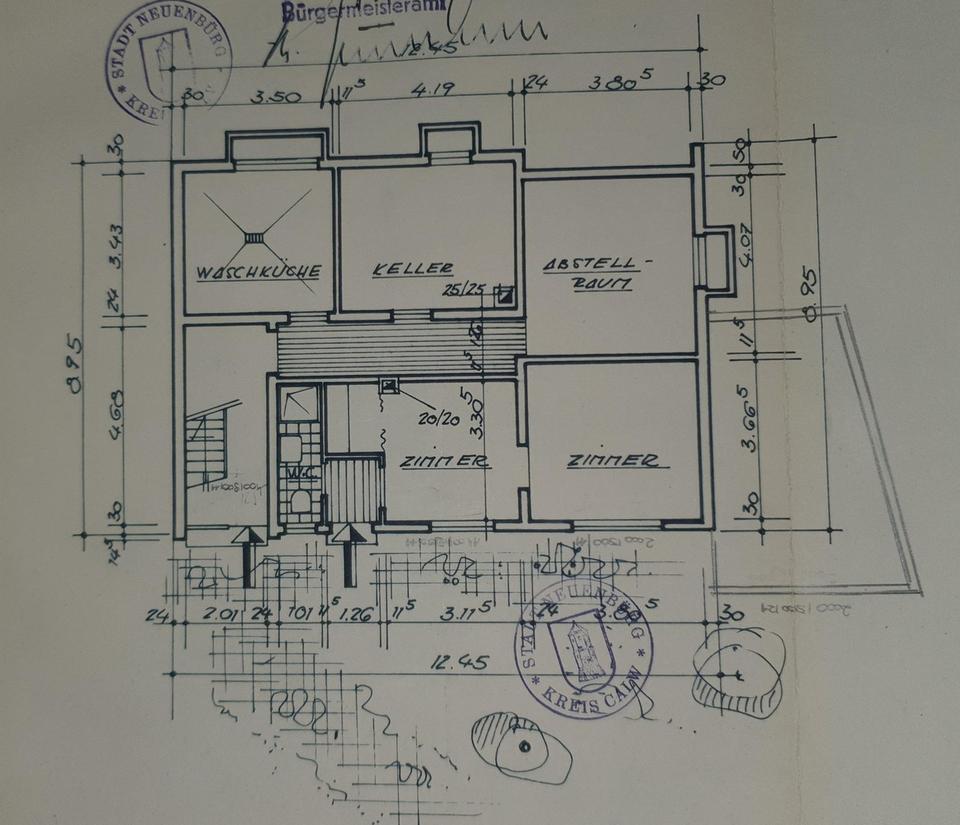 Bürgermeisteramt
STADT NEUENBÜRG
KREIS
12.45
30 3.50 11⁵ 4.19 24 3.80⁵ 30
30
3.43
24
4.68
30
14⁵
8.95
50
30
4.07
11⁵
3.66⁵
30
8.95
WASCHKÜCHE
KELLER
ABSTELL-
RAUM
25/25
11⁵ 1.26
20/20
3.30⁵
W.C.
ZIMMER
ZIMMER
24 2.01 24 1.01 11⁵ 1.26 11⁵ 3.11⁵ 24 30
12.45
STADT NEUENBÜRG
KREIS CALW